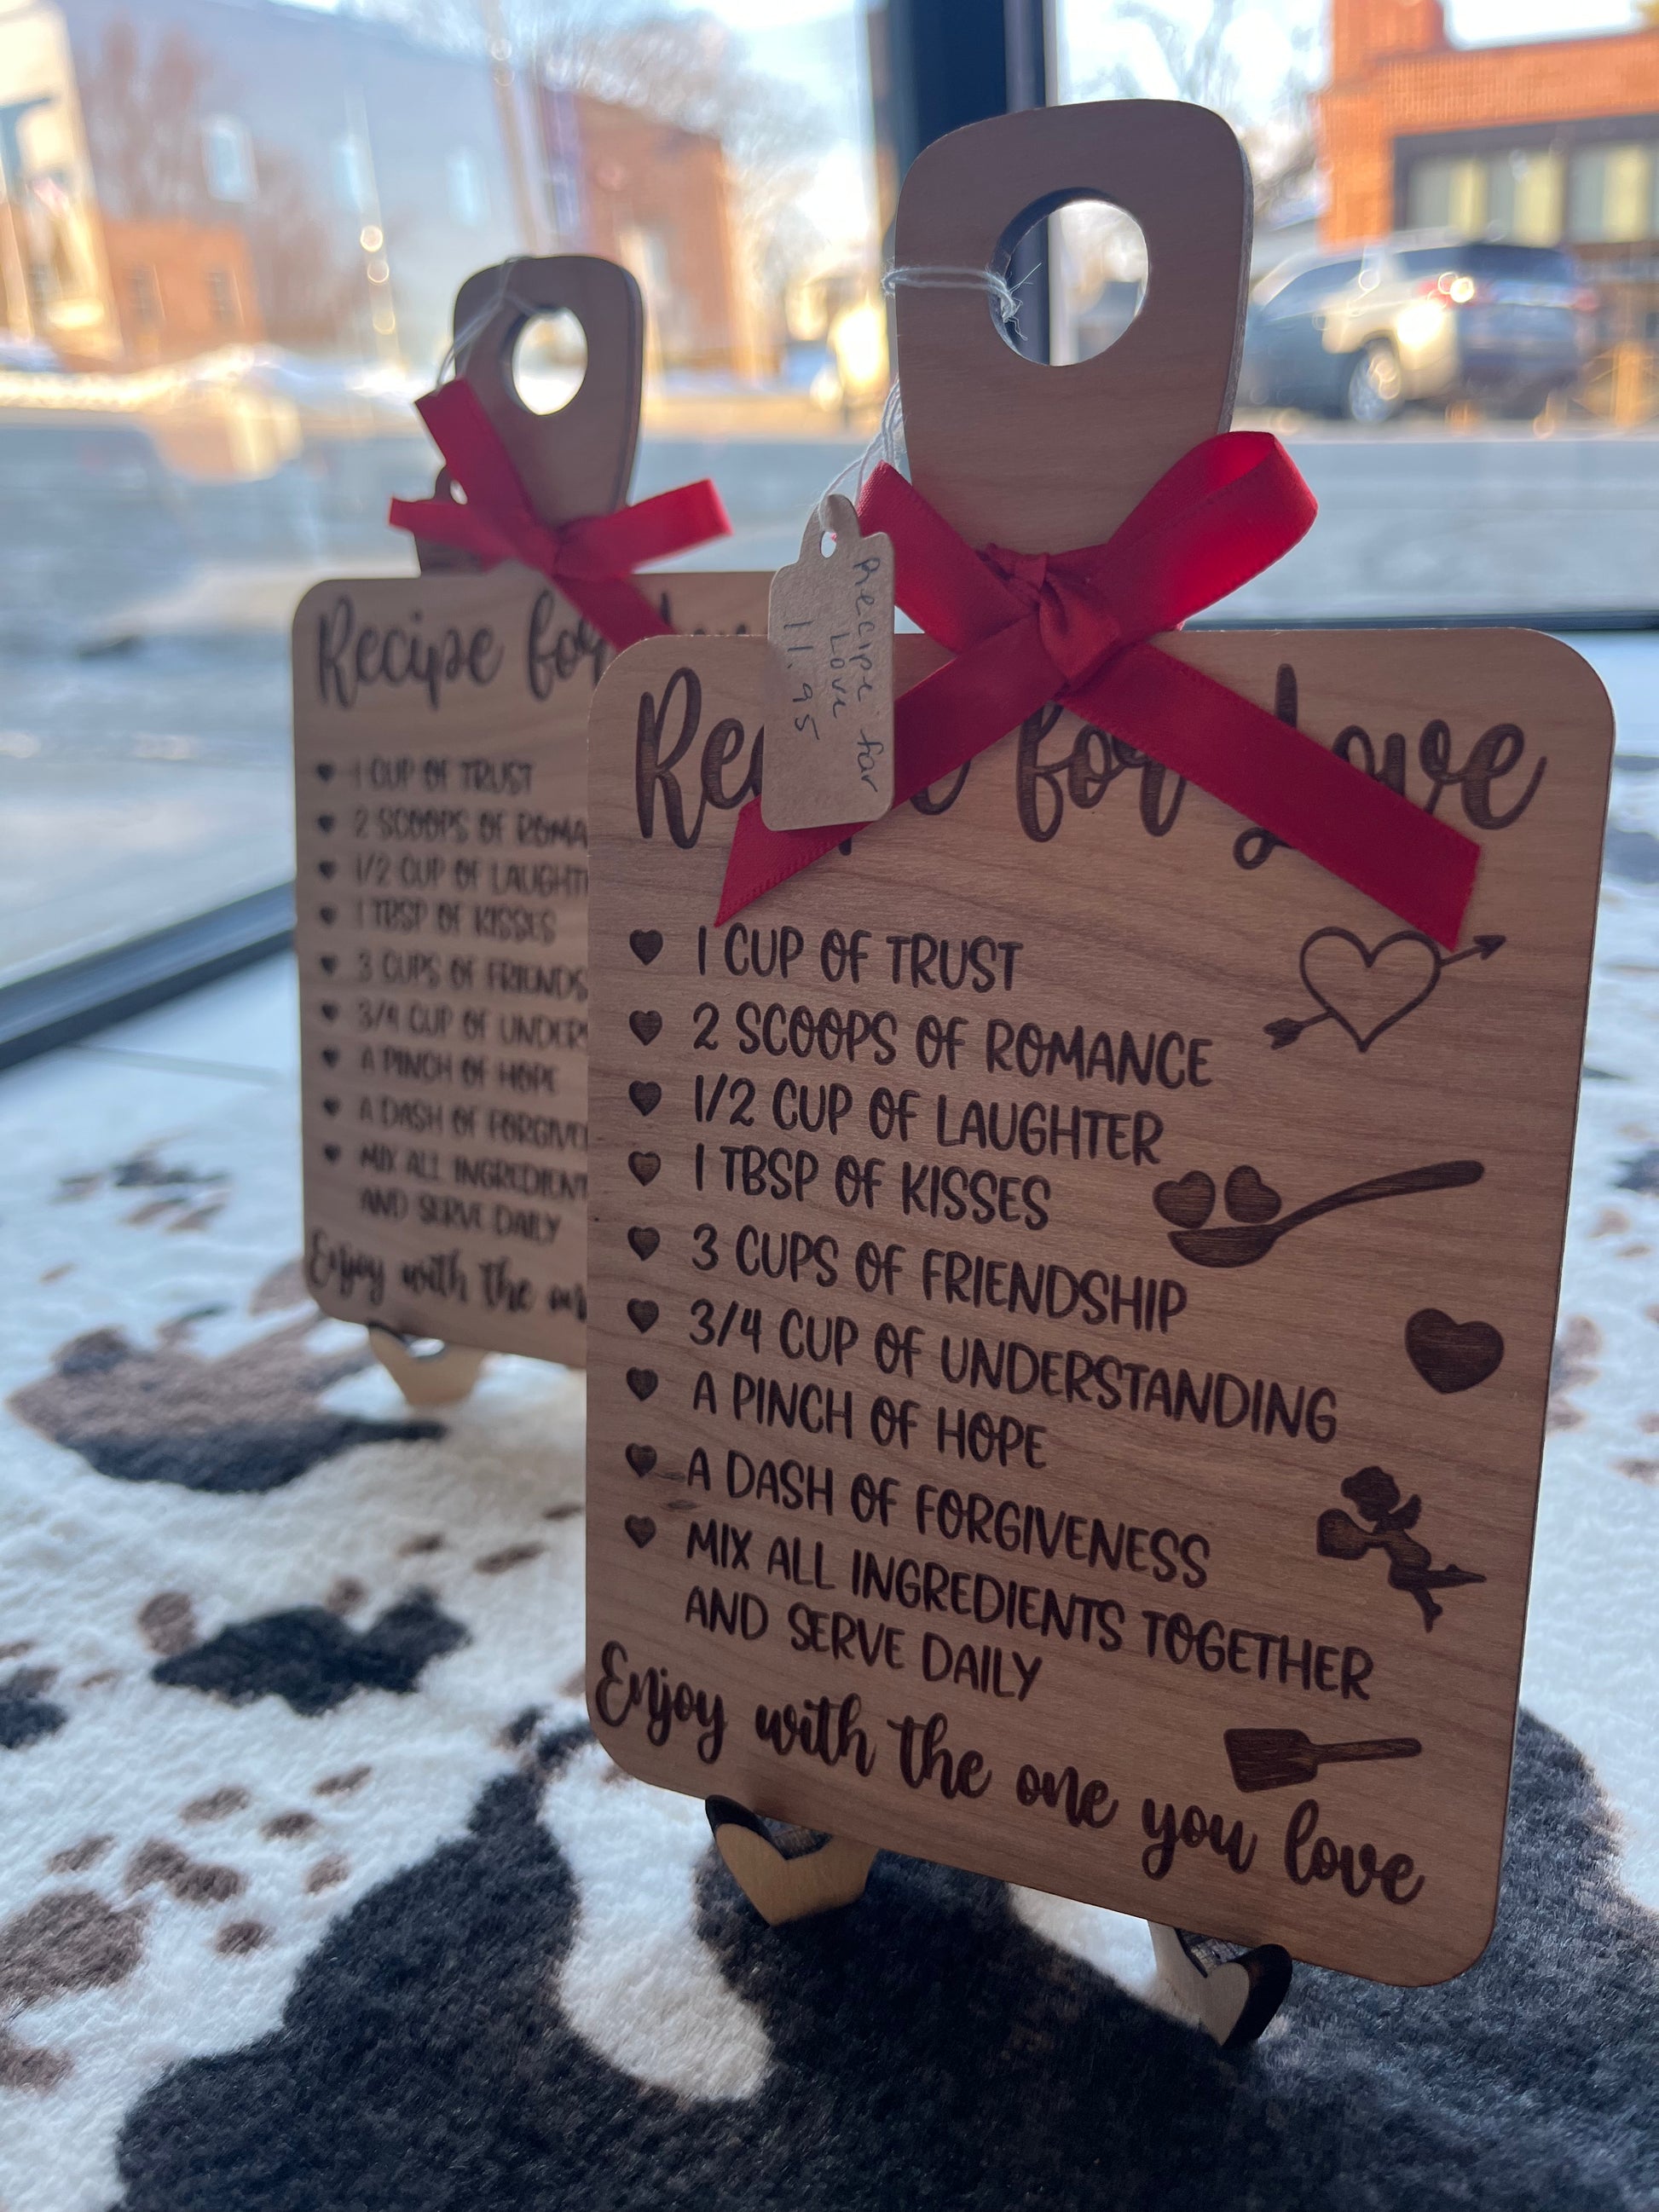 Recipe for
1 CUP OF TRUST
2 SCOOPS OF ROMA
1/2 CUP OF LAUGHT
1 TBSP OF KISSES
3 CUPS OF FRIENDS
3/4 CUP OF UNDER
A PINCH OF HOPE
A DASH OF FORGIVE
MIX ALL INGREDIENT
AND SERVE DAILY
Enjoy with the one
Recipe for
Love
11.95
Recipe for Love
1 CUP OF TRUST
2 SCOOPS OF ROMANCE
1/2 CUP OF LAUGHTER
1 TBSP OF KISSES
3 CUPS OF FRIENDSHIP
3/4 CUP OF UNDERSTANDING
A PINCH OF HOPE
A DASH OF FORGIVENESS
MIX ALL INGREDIENTS TOGETHER
AND SERVE DAILY
Enjoy with the one you love